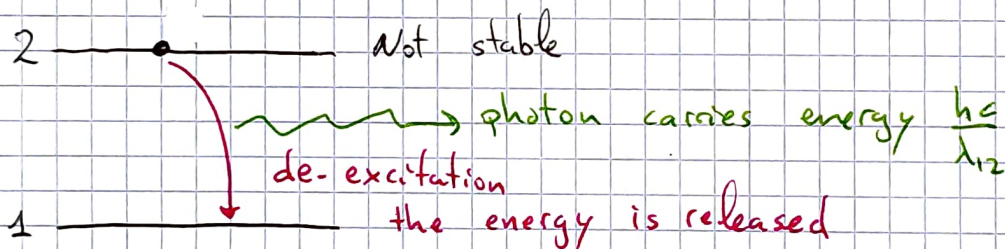 2 Not stable
photon carries energy hc/λ₁₂
de-excitation
1 the energy is released